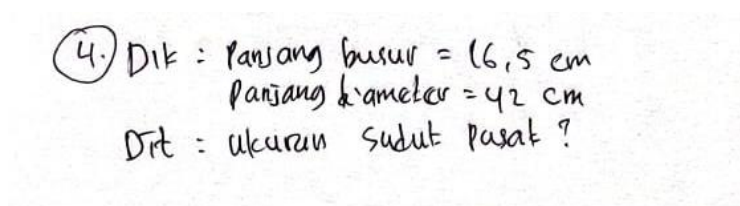 4. Dik : Panjang busur = 16,5 cm
Panjang diameter = 42 cm
Dit : ukuran sudut pusat ?